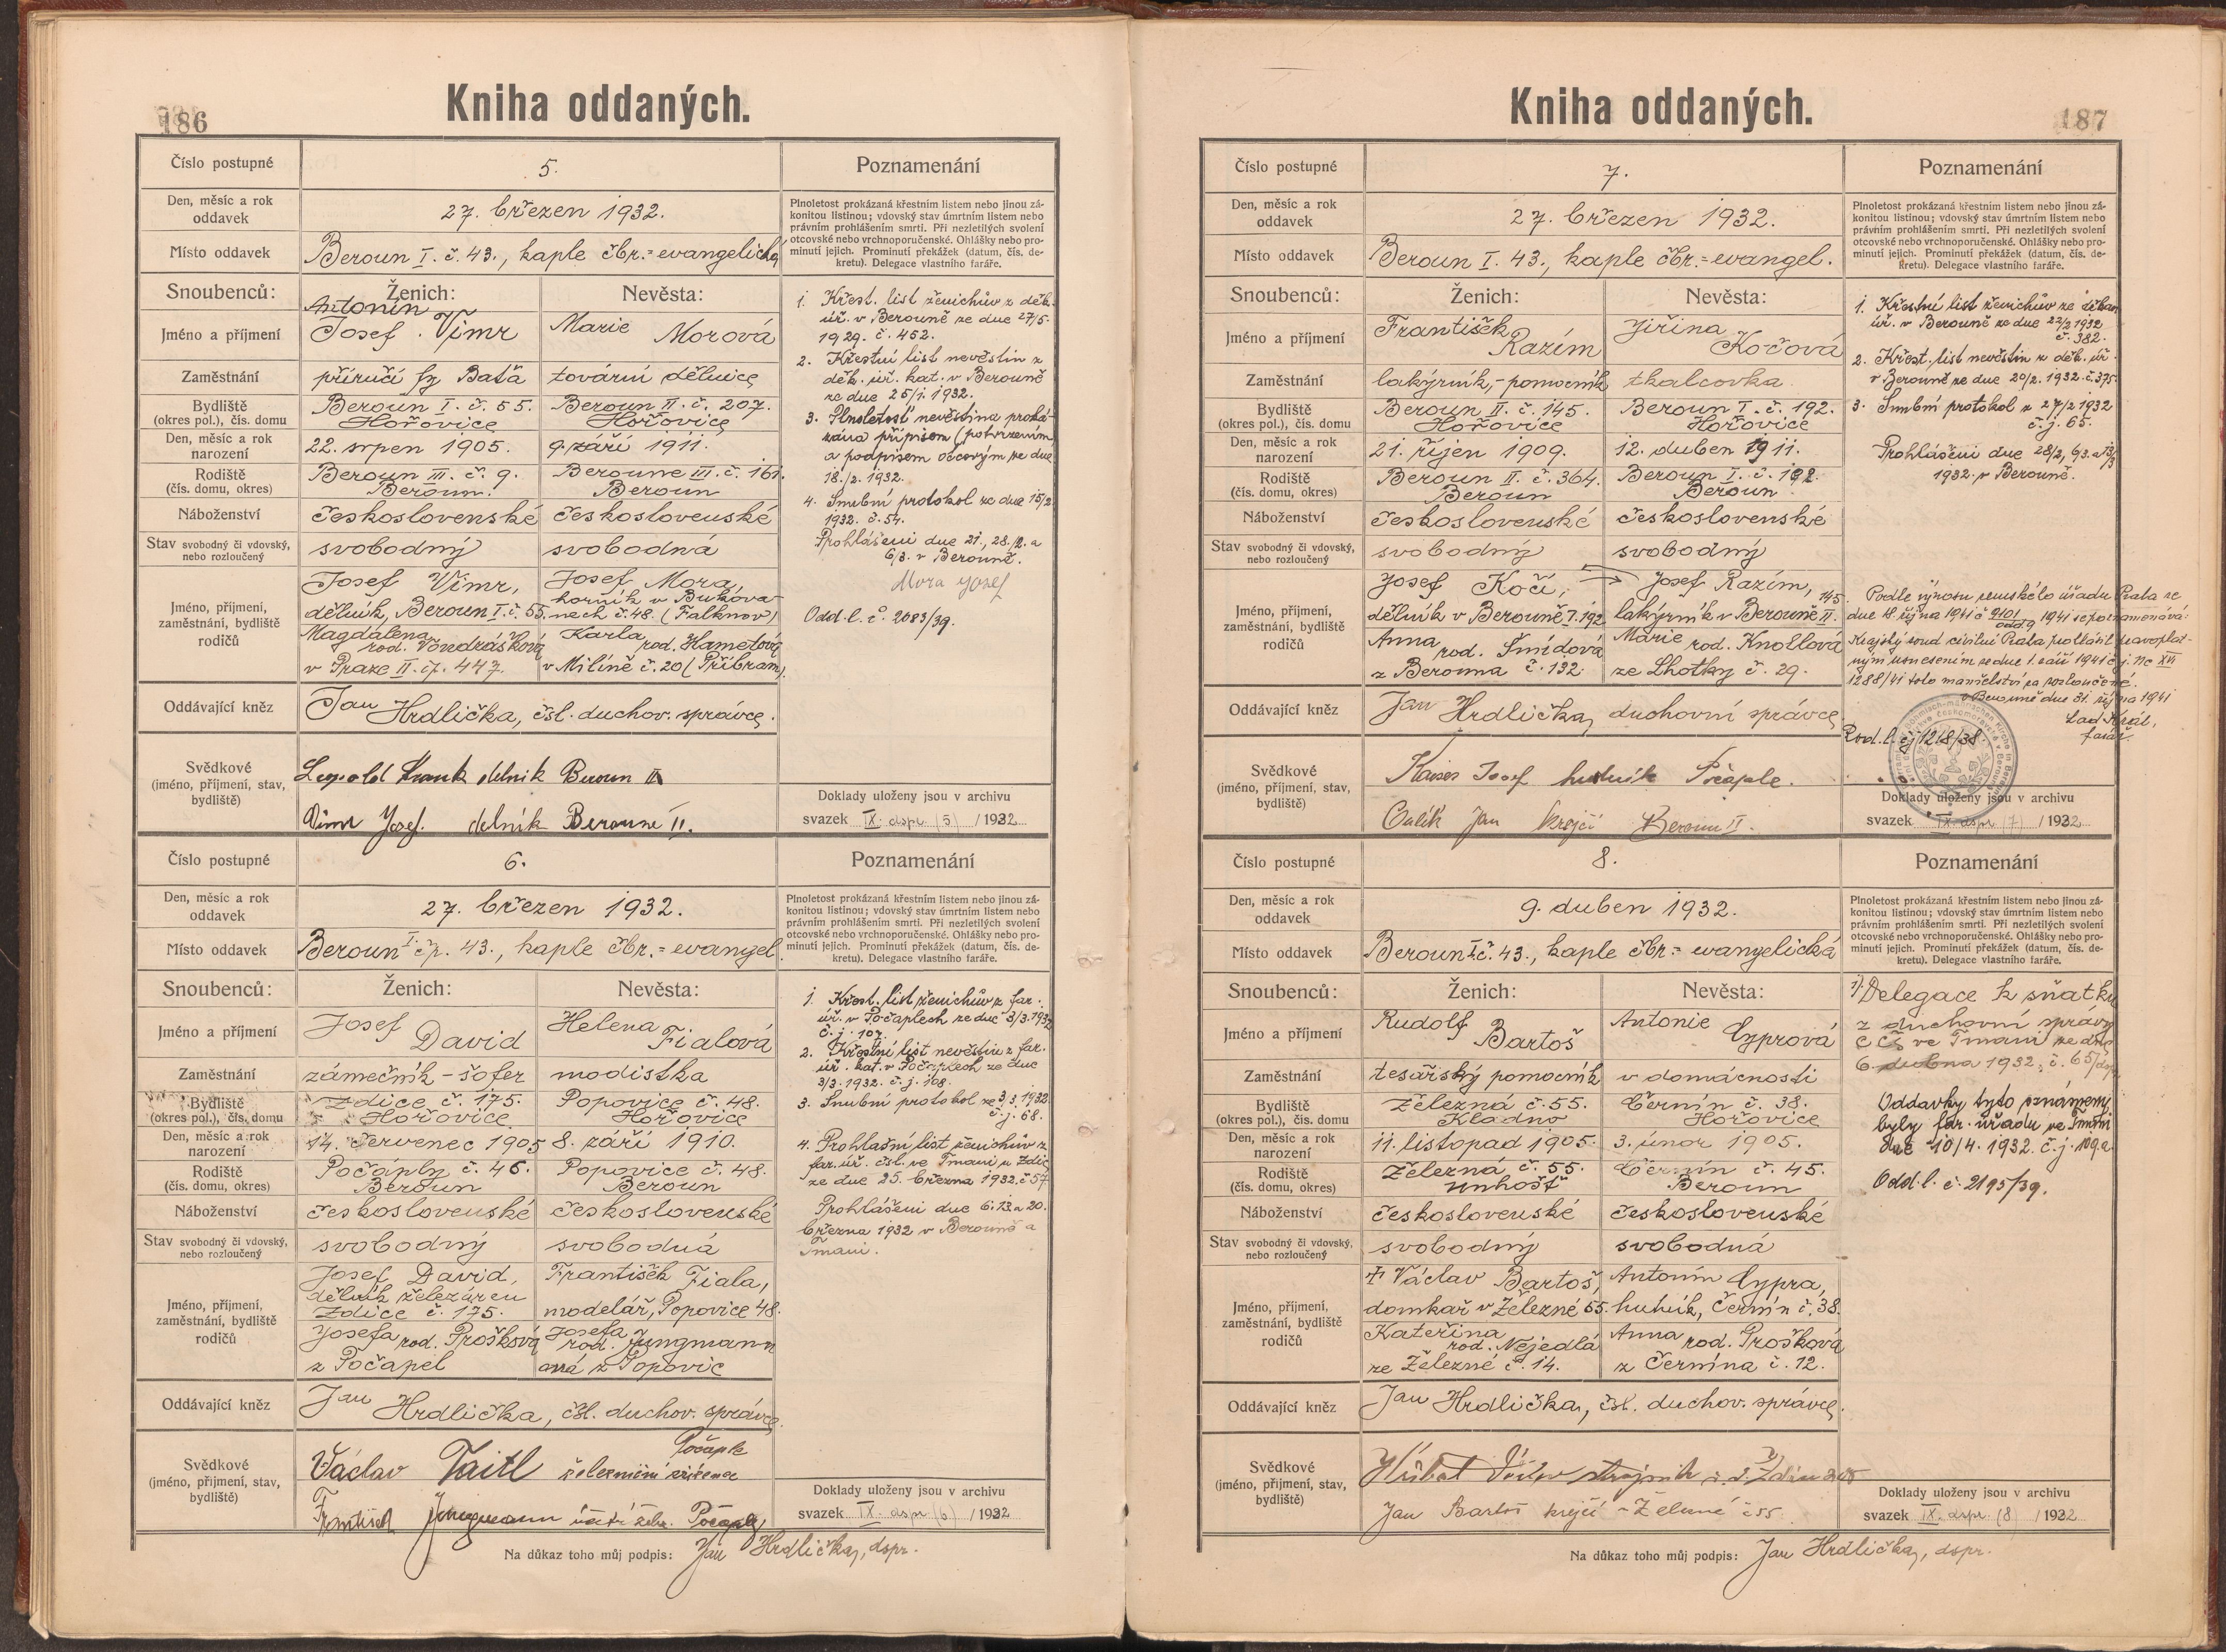 186
Kniha oddaných.
Číslo postupné
5.
Poznamenání
Den, měsíc a rok
oddavek
27. březen 1932.
Plnoletost prokázaná křestním listem nebo jinou zá-
konitou listinou; vdovský stav úmrtním listem nebo
právním prohlášením smrti. Při nezletilých svolení
otcovské nebo vrchnoporučenské. Ohlášky nebo pro-
minutí jejich. Prominutí překážek (datum, čís. de-
kretu). Delegace vlastního faráře.
Místo oddavek
Beroun I. č. 43., kaple čbr.=evangelická
Snoubenců:
Ženich:
Nevěsta:
Jméno a příjmení
Antonín
Josef Vimr
Marie Morová
Zaměstnání
příručí fy Baťa
tovární dělnice
Bydliště
(okres pol.), čís. domu
Beroun I. č. 55.
Hořovice
Beroun II. č. 207.
Hořovice
Den, měsíc a rok
narození
22. srpen 1905.
9. září 1911.
Rodiště
(čís. domu, okres)
Beroun III. č. 9.
Beroun.
Beroune III. č. 161.
Beroun
Náboženství
československé
československé
Stav svobodný či vdovský,
nebo rozloučený
svobodný
svobodná
Jméno, příjmení,
zaměstnání, bydliště
rodičů
Josef Vimr,
dělník, Beroun I. č. 55.
Magdalena
rod. Vondrášková
v Praze II. čp. 447.
Josef Mora,
horník v Bukova-
nech č. 48. (Falknov)
Karla
rod. Hametová
v Milíně č. 20 (Příbram).
Oddávající kněz
Jan Hrdlička, čsl. duchov. správce.
Svědkové
(jméno, příjmení, stav,
bydliště)
Leopold dělnik Beroun II
Vimr Josef. dělník Beroune II.
1. Křest. list ženichův z děk.
úř. v Berouně ze dne 27/5.
1929. č. 452.
2. Křestní list nevěstin z
děk. úř. kat. v Berouně
ze dne 25/1. 1932.
3. Plnoletost nevěstina proká-
zána přípisem (potvrzením)
a podpisem otcovým ze dne
18./2. 1932.
4. Snubní protokol ze dne 15/2.
1932. č. 54.
Prohlášení dne 21., 28./2. a
6/3. v Berouně.
Mora Josef
Odd. l. č. 2083/39.
Doklady uloženy jsou v archivu
svazek IX. dspr. (5) /1932
Číslo postupné
6.
Poznamenání
Den, měsíc a rok
oddavek
27. březen 1932.
Plnoletost prokázaná křestním listem nebo jinou zá-
konitou listinou; vdovský stav úmrtním listem nebo
právním prohlášením smrti. Při nezletilých svolení
otcovské nebo vrchnoporučenské. Ohlášky nebo pro-
minutí jejich. Prominutí překážek (datum, čís. de-
kretu). Delegace vlastního faráře.
Místo oddavek
Beroun I. čp. 43., kaple čbr.=evangel.
Snoubenců:
Ženich:
Nevěsta:
Jméno a příjmení
Josef David
Helena Fialová
Zaměstnání
zámečník - šofer
modistka
Bydliště
(okres pol.), čís. domu
Zdice č. 175.
Hořovice
Popovice č. 48.
Hořovice
Den, měsíc a rok
narození
14. červenec 1905
8. září 1910.
Rodiště
(čís. domu, okres)
Počáply č. 46.
Beroun
Popovice č. 48.
Beroun
Náboženství
československé
československé
Stav svobodný či vdovský,
nebo rozloučený
svobodný
svobodná
Jméno, příjmení,
zaměstnání, bydliště
rodičů
Josef David,
dělník železáren
Zdice č. 175.
Josefa rod. Prošková
z Počapel
František Fiala,
modelář, Popovice 48.
Josefa
rod. Jungmann
ová z Popovic
Oddávající kněz
Jan Hrdlička, čsl. duchov. správce.
Svědkové
(jméno, příjmení, stav,
bydliště)
Počaple
Václav Taitl železniční zřízenec
František Jungmann Počaply
1. Křest. list ženichův z far.
úř. v Počaplech ze dne 3/3. 1932
č. j. 107
2. Křestní list nevěstin z far.
úř. kat. v Počaplech ze dne
3/3. 1932. č. j. 108.
3. Snubní protokol ze 3/3. 1932.
č. j. 68.
4. Prohlašní list ženichův z
far. úř. čsl. ve Tmani u Zdic
ze dne 25. března 1932. č. 57
Prohlášení dne 6. 13. a 20.
března 1932 v Berouně a
Tmani.
Doklady uloženy jsou v archivu
svazek IX. dspr (6) /1932
Na důkaz toho můj podpis: Jan Hrdlička, dspr.
187
Kniha oddaných.
Číslo postupné
7.
Poznamenání
Den, měsíc a rok
oddavek
27. březen 1932.
Plnoletost prokázaná křestním listem nebo jinou zá-
konitou listinou; vdovský stav úmrtním listem nebo
právním prohlášením smrti. Při nezletilých svolení
otcovské nebo vrchnoporučenské. Ohlášky nebo pro-
minutí jejich. Prominutí překážek (datum, čís. de-
kretu). Delegace vlastního faráře.
Místo oddavek
Beroun I. 43., kaple čbr.=evangel.
Snoubenců:
Ženich:
Nevěsta:
Jméno a příjmení
František Razím
Jiřina Kočová
Zaměstnání
lakýrník,-pomocník
tkalcovka
Bydliště
(okres pol.), čís. domu
Beroun II. č. 145.
Hořovice
Beroun I. č. 192.
Hořovice
Den, měsíc a rok
narození
21. říjen 1909.
12. duben 1911.
Rodiště
(čís. domu, okres)
Beroun II. č. 364.
Beroun
Beroun I. č. 192.
Beroun
Náboženství
československé
československé
Stav svobodný či vdovský,
nebo rozloučený
svobodný
svobodný
Jméno, příjmení,
zaměstnání, bydliště
rodičů
Josef Kočí,
dělník v Berouně I. 192
Anna rod. Šmídová
z Berouna č. 132.
Josef Razím,
lakýrník v Berouně II. 145.
Marie rod. Knollová
ze Lhotky č. 29.
Oddávající kněz
Jan Hrdlička, duchovní správce
Svědkové
(jméno, příjmení, stav,
bydliště)
Kaiser Josef hutník Počaple.
Jan krejčí Beroun II.
1. Křestní list ženichův ze děkan.
úř. v Berouně ze dne 22/2 1932
č. 382.
2. Křest. list nevěstin z děk. úř.
v Berouně ze dne 20/2. 1932. č. 375.
3. Snubní protokol z 27/2 1932
č. j. 65.
Prohlášení dne 28/2, 6/3. a 13/3
1932. v Berouně.
Podle výnosu zemského úřadu Praha ze
dne 18. října 1941 č 9101/odd.9 1941 se poznamenává:
Krajský soud civilní Praha prohlásil pravoplat-
ným usnesením ze dne 1. září 1941 č. j. Nc XVI
1288/41 toto manželství za rozloučené.
v Berouně dne 31. října 1941
Lad Král,
farář.
Rod. l. čj 1218/38
Doklady uloženy jsou v archivu
svazek IX. dspr (7) /1932
Číslo postupné
8.
Poznamenání
Den, měsíc a rok
oddavek
9. duben 1932.
Plnoletost prokázaná křestním listem nebo jinou zá-
konitou listinou; vdovský stav úmrtním listem nebo
právním prohlášením smrti. Při nezletilých svolení
otcovské nebo vrchnoporučenské. Ohlášky nebo pro-
minutí jejich. Prominutí překážek (datum, čís. de-
kretu). Delegace vlastního faráře.
Místo oddavek
Beroun I. č. 43., kaple čbr.=evangelická
Snoubenců:
Ženich:
Nevěsta:
Jméno a příjmení
Rudolf Bartoš
Antonie Cyprová
Zaměstnání
tesařský pomocník
v domácnosti
Bydliště
(okres pol.), čís. domu
Železná č. 55.
Kladno
Černín č. 38.
Hořovice
Den, měsíc a rok
narození
11. listopad 1905.
3. únor 1905.
Rodiště
(čís. domu, okres)
Železná č. 55.
Unhošť
Černín č. 45.
Beroun
Náboženství
československé
československé
Stav svobodný či vdovský,
nebo rozloučený
svobodný
svobodná
Jméno, příjmení,
zaměstnání, bydliště
rodičů
† Václav Bartoš,
domkař v Železné 55.
Kateřina
rod. Nejedlá
ze Železné č. 14.
Antonín Cypra,
hutník, Černín č. 38.
Anna rod. Prošková
z Černína č. 12.
Oddávající kněz
Jan Hrdlička, čsl. duchov. správce.
Svědkové
(jméno, příjmení, stav,
bydliště)
Václav strojník
Jan Bartoš krejčí - Železné č 55
1) Delegace k sňatku
z duchovní správy
CČS ve Tmani ze dne
6. dubna 1932. č. 65/dsp.
Oddavky tyto oznámeny
byly far. úřadu ve Tmani
dne 10/4. 1932. č. j. 109.a
Odd. l. č. 2195/39.
Doklady uloženy jsou v archivu
svazek IX. dspr. (8) /1932
Na důkaz toho můj podpis: Jan Hrdlička, dspr.